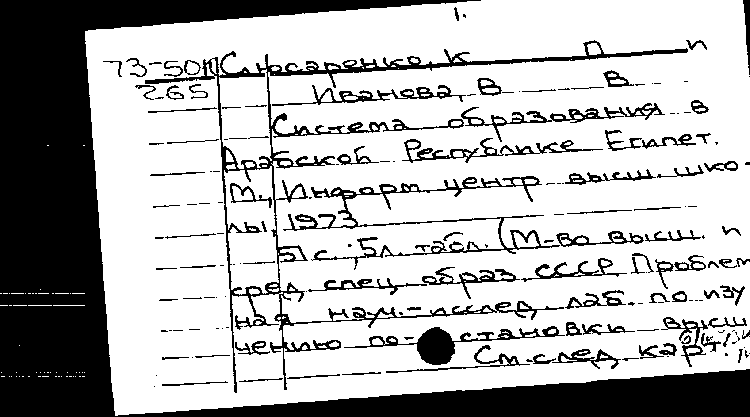 1.
73-50111 Слюсаренко, К П и
265 Иванова, В В
Система образования в
Арабской Республике Египет.
М., Информ. центр высш. шко-
лы, 1973.
51 с.; 5 л. табл. (М-во высш. и
сред. спец. образ. СССР Проблем
ная науч.-исслед. лаб. по изу
чению по- становки высш
См. след. карт.